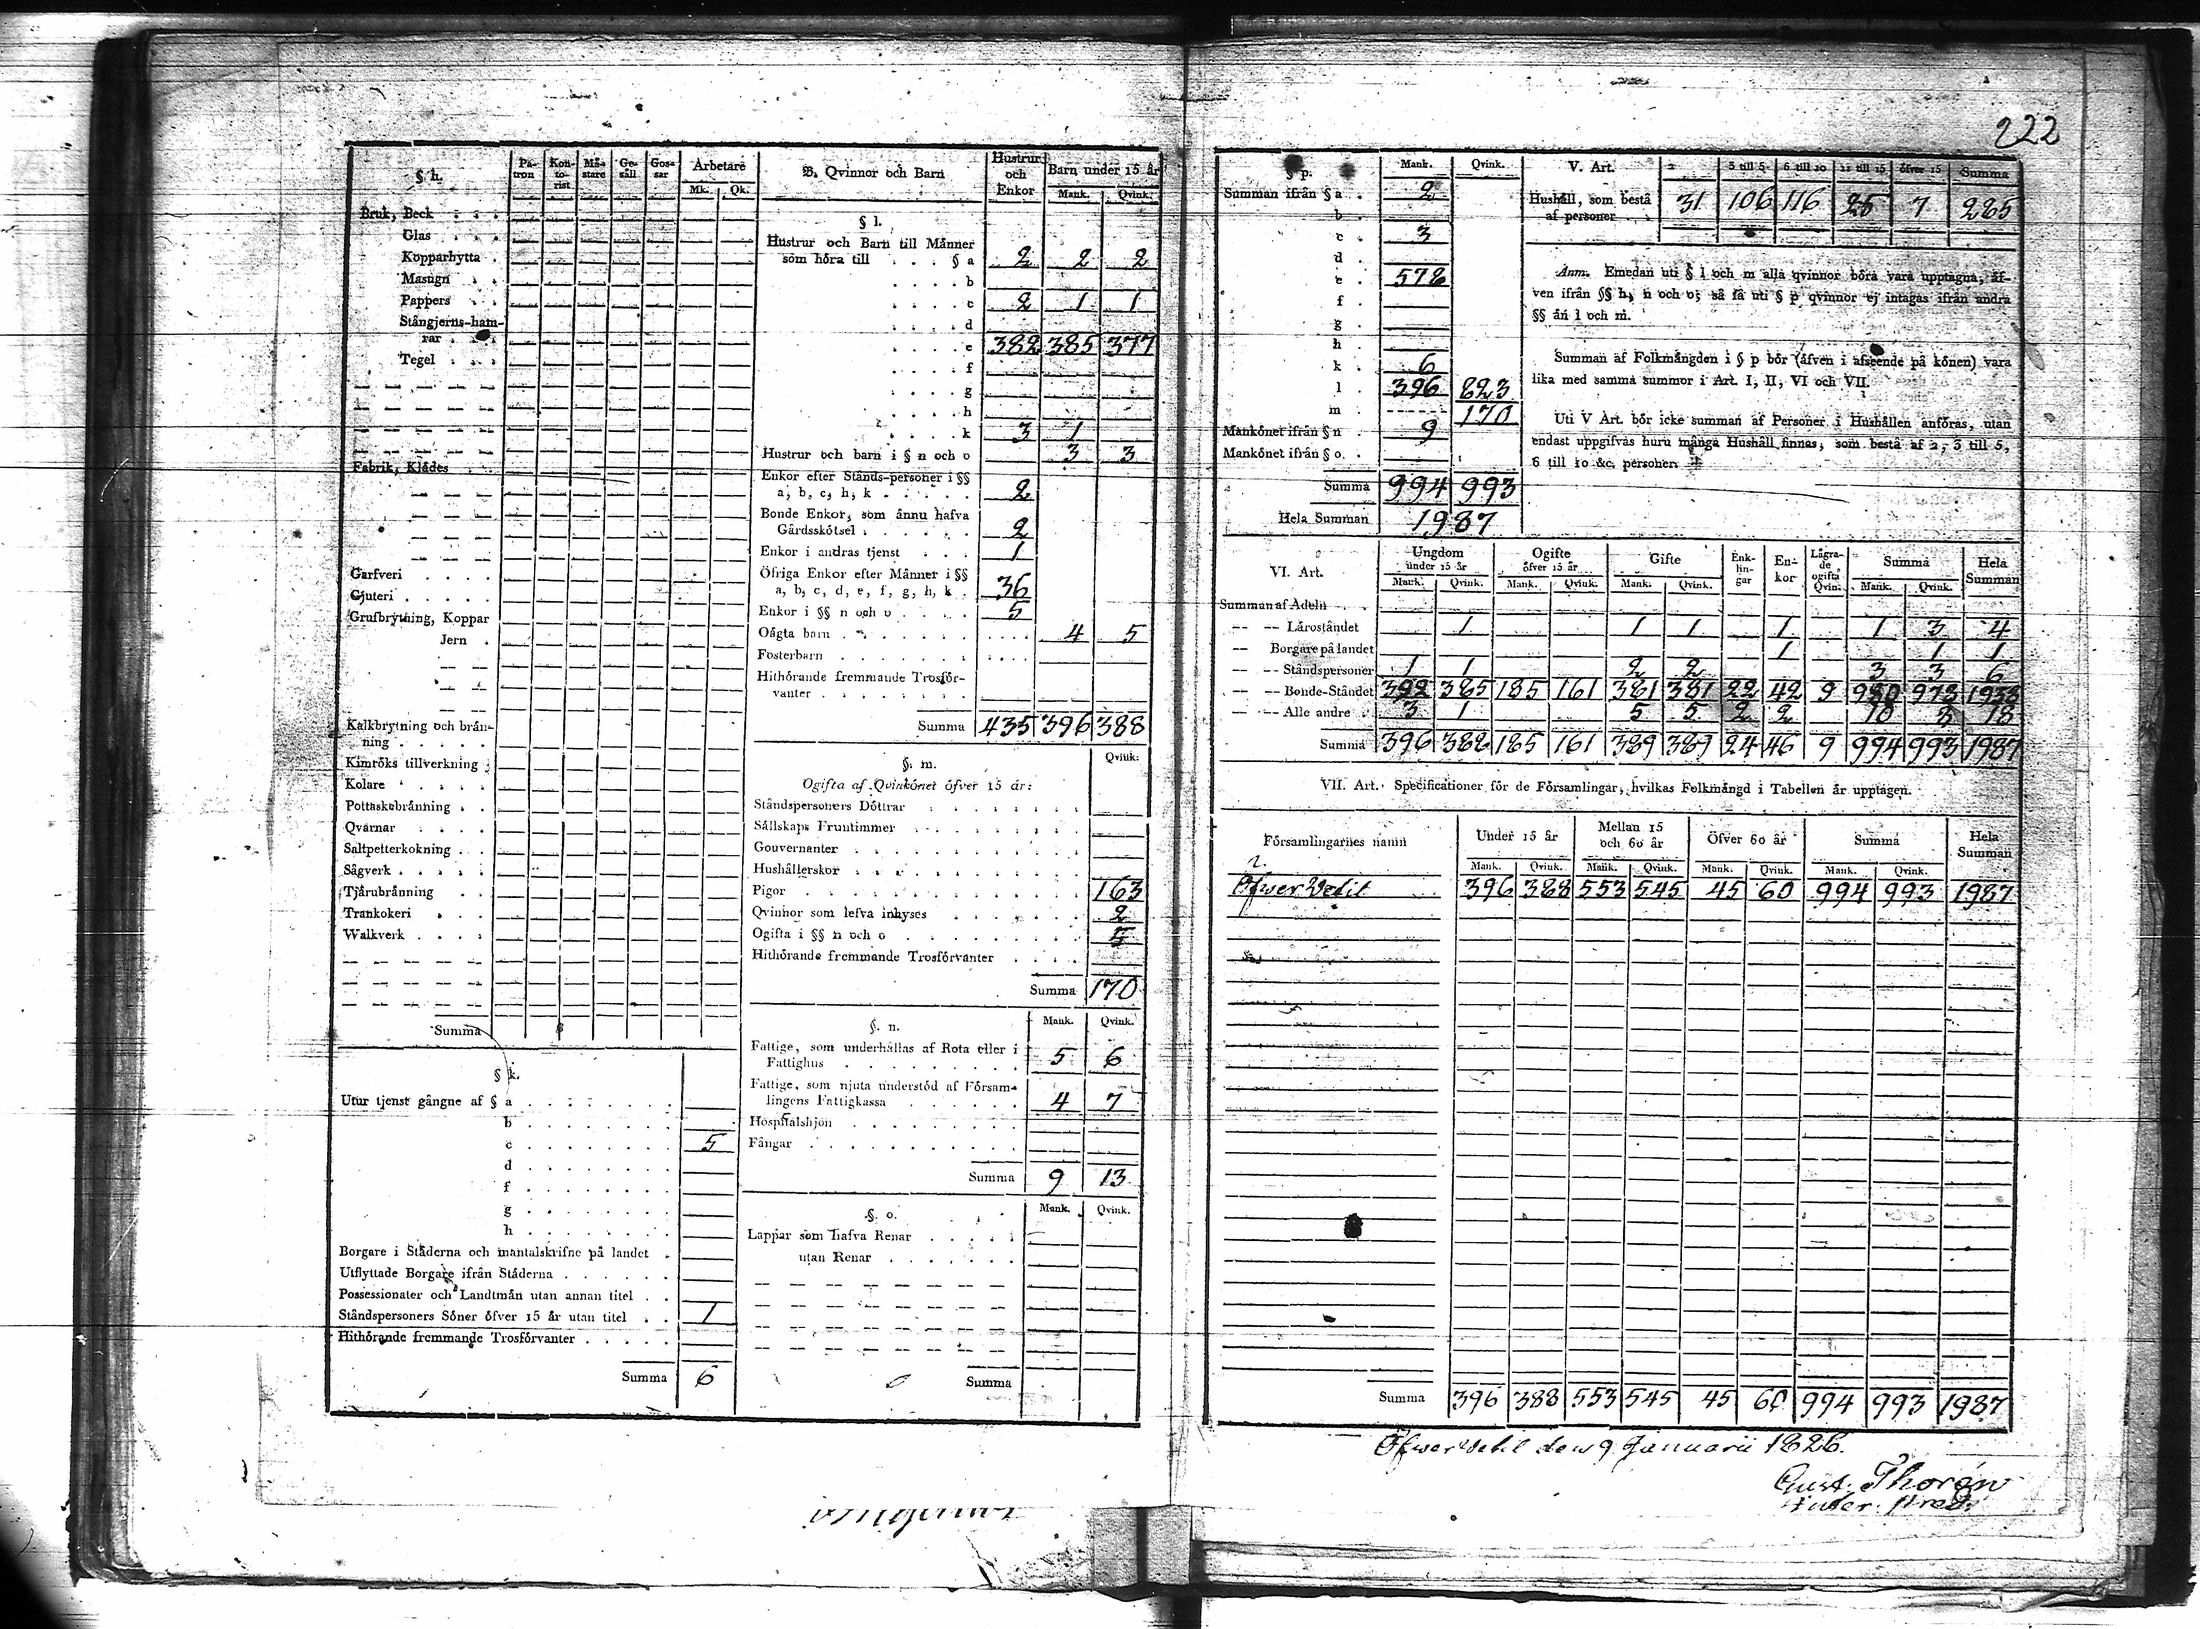 222
§ h. Pa-tron Kon-to-rist Mä-stare Ge-säll Gos-sar Arbetare Mk. Qk.
Bruk, Beck . . .
Glas . . .
Kopparhytta .
Masugn . .
Pappers . .
Stångjerns-ham-
rar . . .
Tegel . . .
Fabrik, Klädes . . .
Garfveri . . . .
Gjuteri . . . . .
Grufbrytning, Koppar
Jern .
Kalkbrytning och brän-
ning . . . . .
Kimröks tillverkning .
Kolare . . . . .
Pottaskebränning . .
Qvarnar . . . .
Saltpetterkokning . .
Sågverk . . . . .
Tjärubränning . .
Trankokeri . . .
Walkverk . . .
Summa
§ k.
Utur tjenst gångne af § a . . . . . . .
b . . . . . . .
c . . . . . . . 5
d . . . . . . .
f . . . . . . .
g . . . . . . .
h . . . . . . .
Borgare i Städerna och mantalskrifne på landet .
Utflyttade Borgare ifrån Städerna . . . . . .
Possessionater och Landtmän utan annan titel . .
Ståndspersoners Söner öfver 15 år utan titel . . 1
Hithörande fremmande Trosförvanter . . . . .
Summa 6
B. Qvinnor och Barn Hustrur och Enkor Barn under 15 år Mank. Qvink.
§ l.
Hustrur och Barn till Männer
som höra till . . . § a 2 2 2
. . . . b
. . . . c 2 1 1
. . . . d
. . . . e 382 385 377
. . . . f
. . . . g
. . . . h
. . . . k 3 1
Hustrur och barn i § n och o 3 3
Enkor efter Stånds-personer i §§
a, b, c, h, k . . . . . 2
Bonde Enkor, som ännu hafva
Gårdsskötsel . . . . . . 2
Enkor i andras tjenst . . . 1
Öfriga Enkor efter Männer i §§
a, b, c, d, e, f, g, h, k . 36
Enkor i §§ n och o . . . . . 5
Oägta barn . . . . . . . . . . . 4 5
Fosterbarn . . . . . . . . . . .
Hithörande fremmande Trosför-
vanter . . . . . . .
Summa 435 396 388
§. m. Qvink.
Ogifta af Qvinkönet öfver 15 år:
Ståndspersoners Döttrar . . . . . . .
Sällskaps Fruntimmer . . . . . . . . .
Gouvernanter . . . . . . . . . . .
Hushållerskor . . . . . . . . . . .
Pigor . . . . . . . . . . . . . 163
Qvinnor som lefva inhyses . . . . . . 2
Ogifta i §§ n och o . . . . . . . . . 5
Hithörande fremmande Trosförvanter . . . .
Summa 170
§. n. Mank. Qvink.
Fattige, som underhållas af Rota eller i
Fattighus . . . . . . . . . 5 6
Fattige, som njuta understöd af Försam-
lingens Fattigkassa . . . . . . 4 7
Hospitalshjon . . . . . . . . .
Fångar . . . . . . . . . . .
Summa 9 13
§. o. Mank. Qvink.
Lappar som hafva Renar . . . . .
utan Renar . . . . . . .
Summa
§ p. Mank. Qvink.
Summan ifrån § a . 2
b .
c . 3
d .
e . 578
f .
g .
h .
k . 6
l . 396 823
m . 170
Mankönet ifrån § n . 9
Mankönet ifrån § o . .
Summa 994 993
Hela Summan 1987
V. Art. 2 3 till 5 6 till 10 11 till 15 öfver 15 Summa
Hushåll, som bestå
af personer . . 31 106 116 25 7 285
Anm. Emedan uti § l och m alla qvinnor böra vara upptagna, äf-
ven ifrån §§ h, n och o; så få uti § p qvinnor ej intagas ifrån andra
§§ än l och m.
Summan af Folkmängden i § p bör (äfven i afseende på könen) vara
lika med samma summor i Art. I, II, VI och VII.
Uti V Art. bör icke summan af Personer i Hushållen anföras, utan
endast uppgifvas huru många Hushåll finnas, som bestå af 2, 3 till 5,
6 till 10 &c. personer.
VI. Art. Ungdom under 15 år Ogifte öfver 15 år Gifte Enk-lin-gar En-kor Lägra-de ogifta Qvin. Summa Hela Summan
Mank. Qvink. Mank. Qvink. Mank. Qvink. Mank. Qvink.
Summan af Adeln . .
— — Läroståndet 1 1 1 1 1 3 4
— Borgare på landet 1 1 1
— — Ståndspersoner 1 1 2 2 3 3 6
— — Bonde-Ståndet 392 385 185 161 381 381 22 42 9 980 978 1958
— — Alle andre . 3 1 5 5 2 2 10 8 18
Summa 396 388 185 161 389 389 24 46 9 994 993 1987
VII. Art. Specificationer för de Församlingar, hvilkas Folkmängd i Tabellen är upptagen.
Församlingarnes namn Under 15 år Mellan 15 och 60 år Öfver 60 år Summa Hela Summan
Mank. Qvink. Mank. Qvink. Mank. Qvink. Mank. Qvink.
Öfwer Vetil 396 388 553 545 45 60 994 993 1987
Summa 396 388 553 545 45 60 994 993 1987
Öfwer Vetil den 9 Januarii 1826.
Gust. Thorén